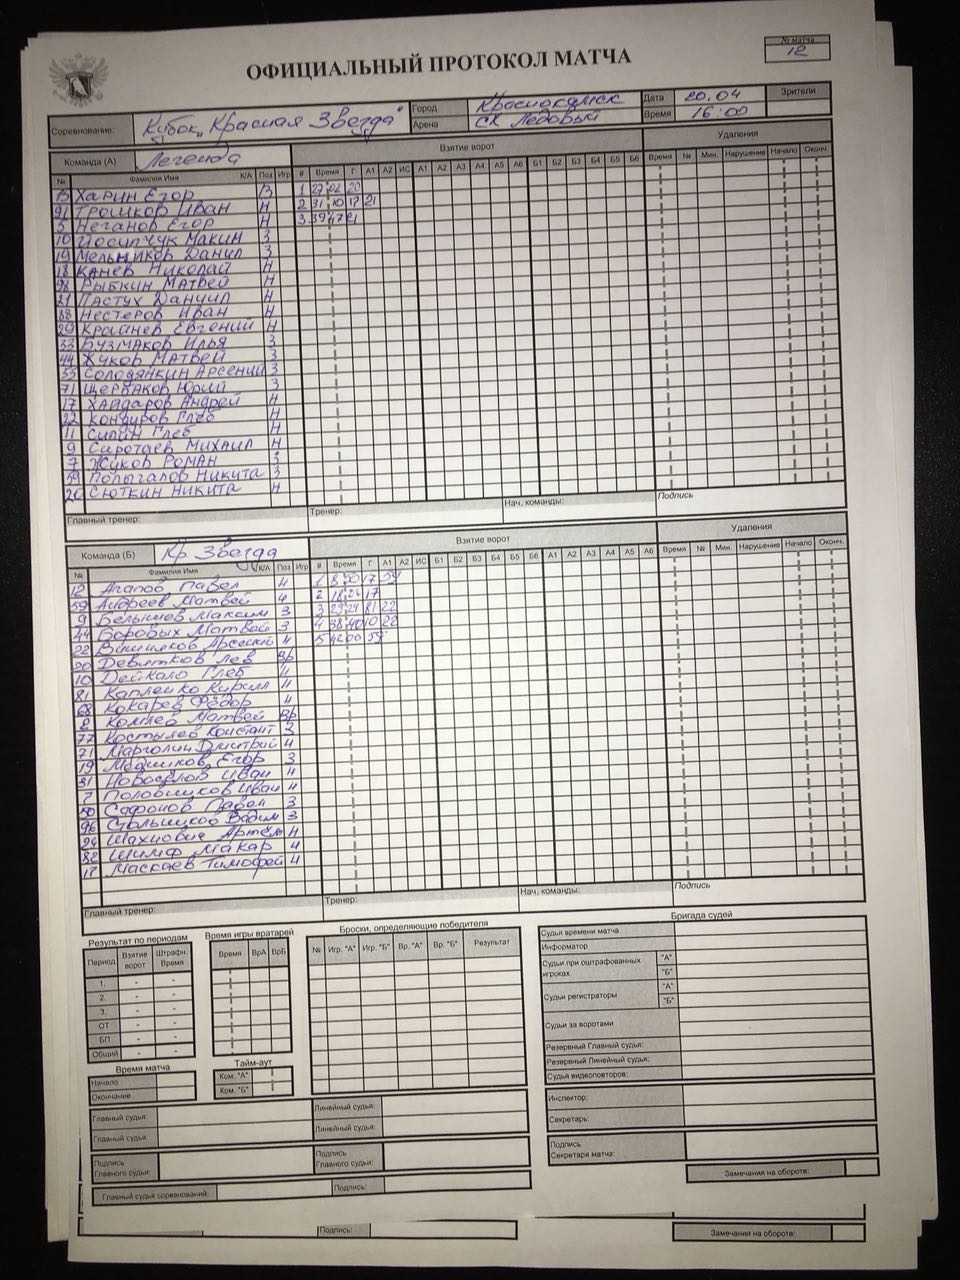 ОФИЦИАЛЬНЫЙ ПРОТОКОЛ МАТЧА
№ матча
12
Соревнование: Кубок „Красная Звезда“ Город Краснокамск Дата 20.04 Зрители
Арена СК Ледовый Время 16:00
Команда (А) Легенда Взятие ворот Удаления
№ Фамилия Имя К/А Поз Игр # Время Г А1 А2 ИС А1 А2 А3 А4 А5 А6 Б1 Б2 Б3 Б4 Б5 Б6 Время № Мин. Нарушение Начало Оконч.
Харин Егор В 1 27 02 20
91 Трошков Иван Н 2 31 10 17 21
5 Неганов Егор Н 3 39 47 21
10 Иосипчук Макин З
19 Мельников Данил З
18 Канев Николай Н
98 Рыбкин Матвей Н
21 Пастух Даниил Н
88 Нестеров Иван Н
29 Крайнев Евгений Н
33 Бузмаков Илья З
44 Жуков Матвей З
55 Солодянкин Арсений З
71 Щербаков Юрий З
17 Хайдаров Андрей Н
22 Кондуров Глеб Н
11 Силин Глеб Н
9 Сиротаев Михаил Н
7 Жуков Роман З
59 Полыгалов Никита З
20 Сюткин Никита Н
Главный тренер: Тренер: Нач. команды: Подпись
Команда (Б) Кр Звезда Взятие ворот Удаления
№ Фамилия Имя К/А Поз Игр # Время Г А1 А2 ИС Б1 Б2 Б3 Б4 Б5 Б6 А1 А2 А3 А4 А5 А6 Время № Мин. Нарушение Начало Оконч.
12 Агапов Павел Н 1 8 50 17 59
59 Андреев Матвей Н 2 18 24 17
9 Белышев Максим З 3 29 24 81 22
44 Боровых Матвей З 4 38 40 10 22
22 Викулков Арсений Н 5 42 00 59
20 Девятков Лев Вр
10 Дейкало Глеб Н
81 Каплеико Кирилл Н
68 Кокарев Фёдор Н
2 Комлев Матвей Вр
77 Костылев Констант З
71 Марголин Дмитрий Н
19 Мошников Егор З
31 Новоселов Иван Н
7 Половников Иван Н
50 Сафонов Павел З
96 Стольников Вадим З
94 Шахнович Артём Н
82 Шимф Макар Н
17 Маскаев Тимофей Н
Главный тренер: Тренер: Нач. команды: Подпись
Результат по периодам Время игры вратарей Броски, определяющие победителя Бригада судей
Период Взятие ворот Штрафн. Время Время ВрА ВрБ № Игр. "А" Игр. "Б" Вр. "А" Вр. "Б" Результат
1. - -
2. - -
3. - -
ОТ - -
БП - -
Общий - -
Судья времени матча
Информатор
Судьи при оштрафованных игроках "А"
"Б"
Судьи регистраторы "А"
"Б"
Судьи за воротами
Резервный Главный судья:
Резервный Линейный судья:
Судья видеоповторов:
Время матча Тайм-аут
Начало Ком. "А"
Окончание Ком. "Б"
Инспектор:
Секретарь:
Главный судья: Линейный судья:
Главный судья: Линейный судья:
Подпись Главного судьи: Подпись Главного судьи:
Подпись Секретаря матча:
Главный судья соревнований: Подпись: Замечания на обороте:
Подпись: Замечания на обороте: